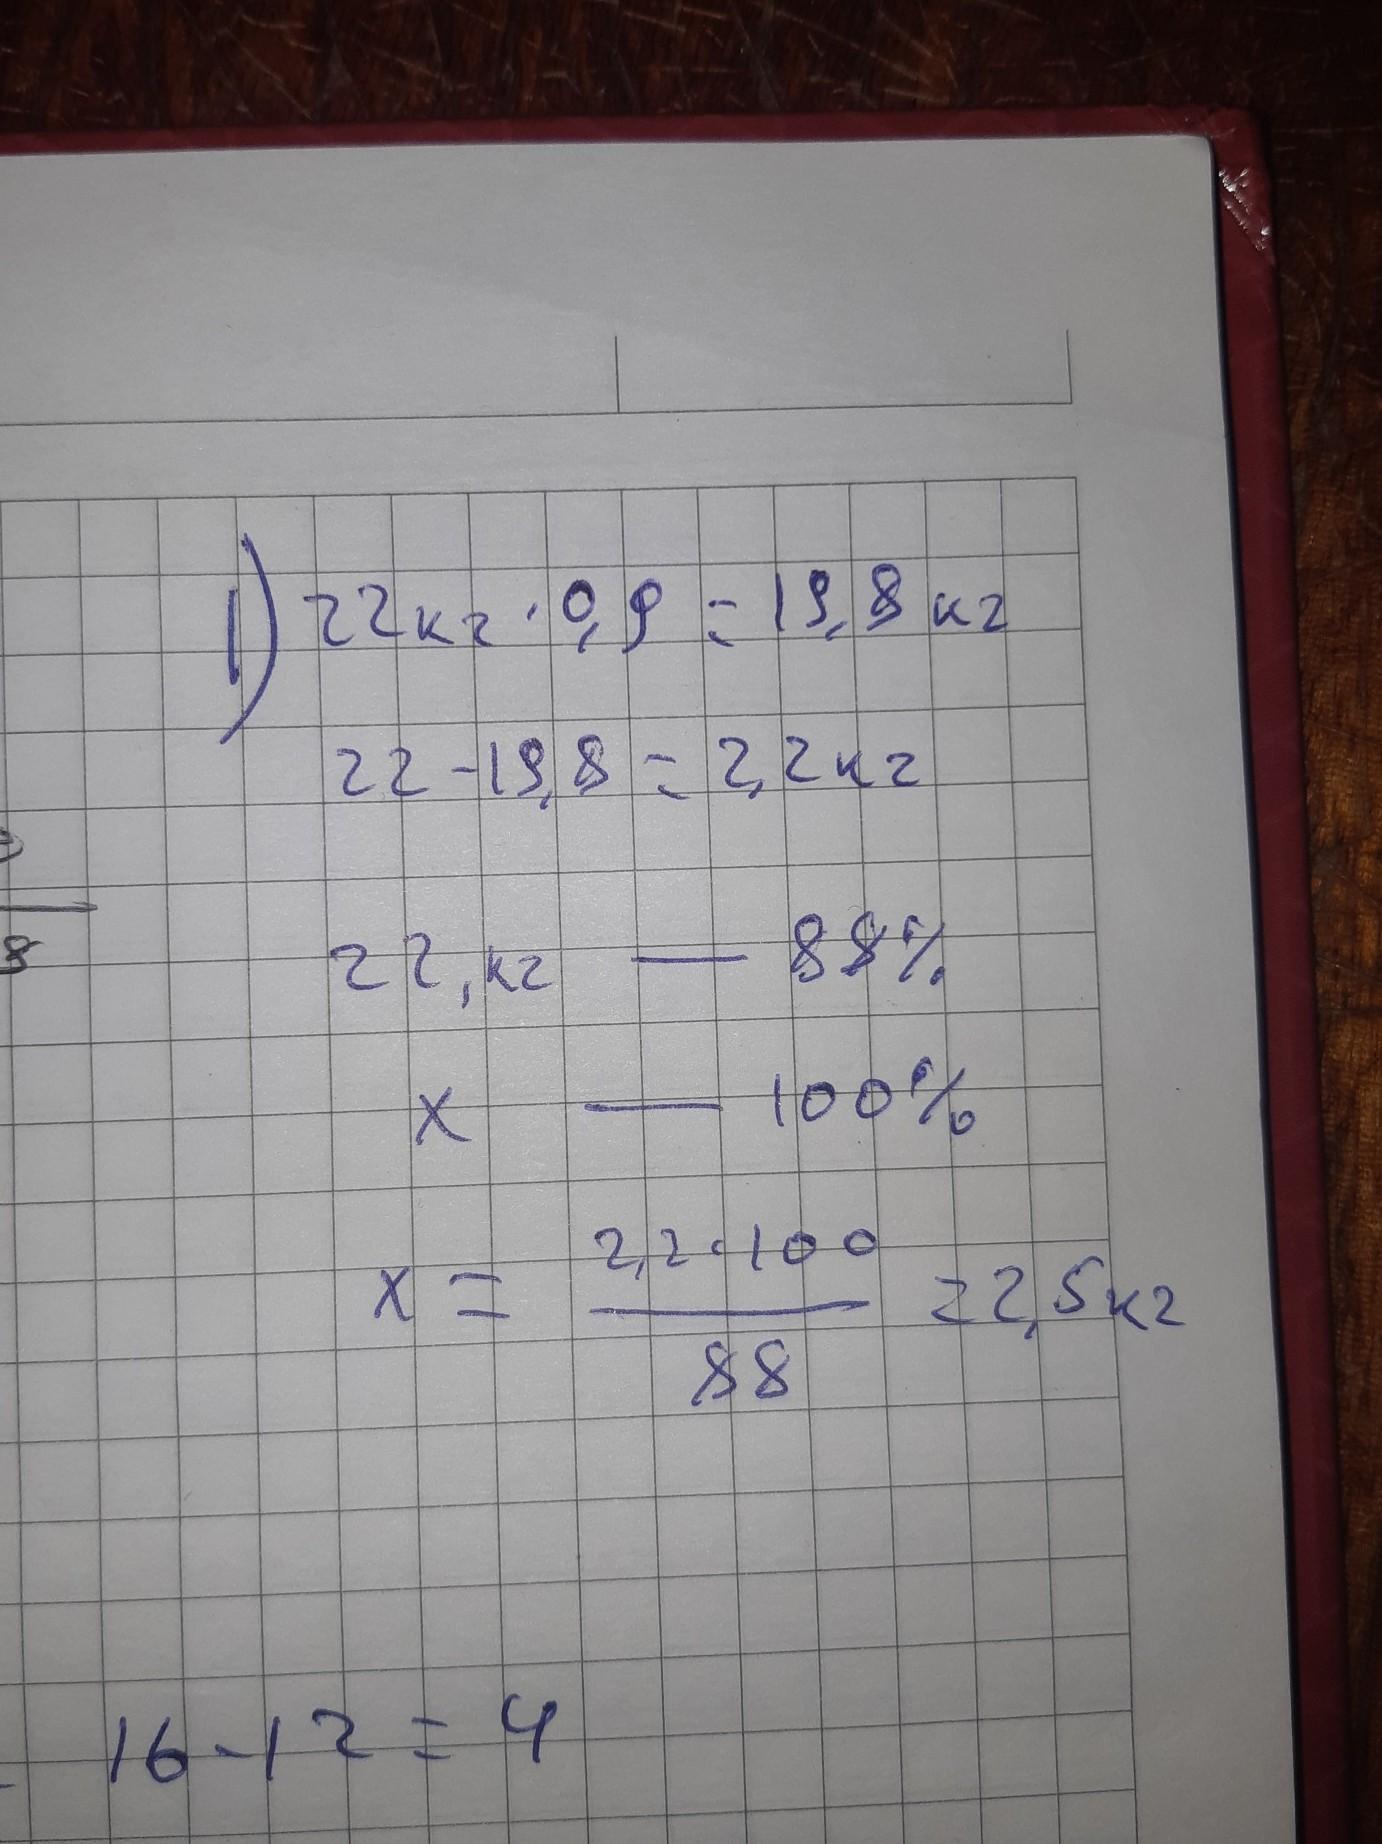 1) 22кг · 0,9 = 19,8 кг
22 - 19,8 = 2,2 кг
8
22, кг — 88%
x — 100%
x = 2,2 · 100 / 88 = 2,5 кг
16 - 12 = 4